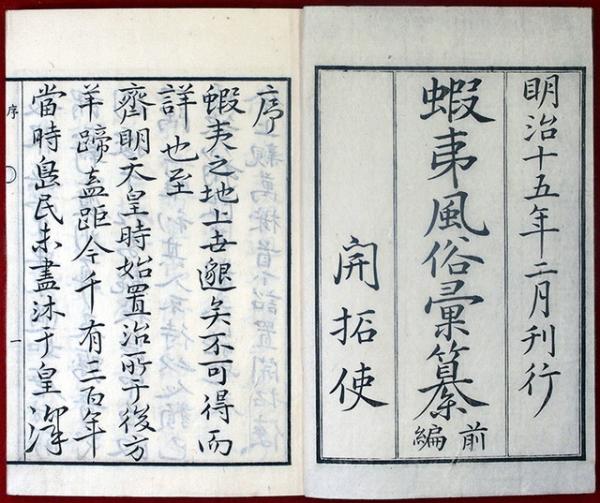 明治十五年二月刊行
蝦夷風俗彙纂
前編
開拓使
序
蝦夷之地上古邈矣不可得而
詳也至
齊明天皇時始置治所于後方
羊蹄盖距今千有二百年
當時島民未盡沐于皇澤
序
一